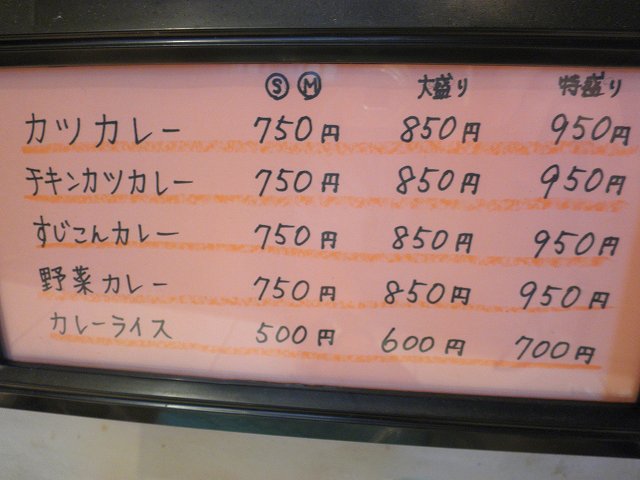 Ⓢ Ⓜ 大盛り 特盛り
カツカレー 750円 850円 950円
チキンカツカレー 750円 850円 950円
すじこんカレー 750円 850円 950円
野菜カレー 750円 850円 950円
カレーライス 500円 600円 700円